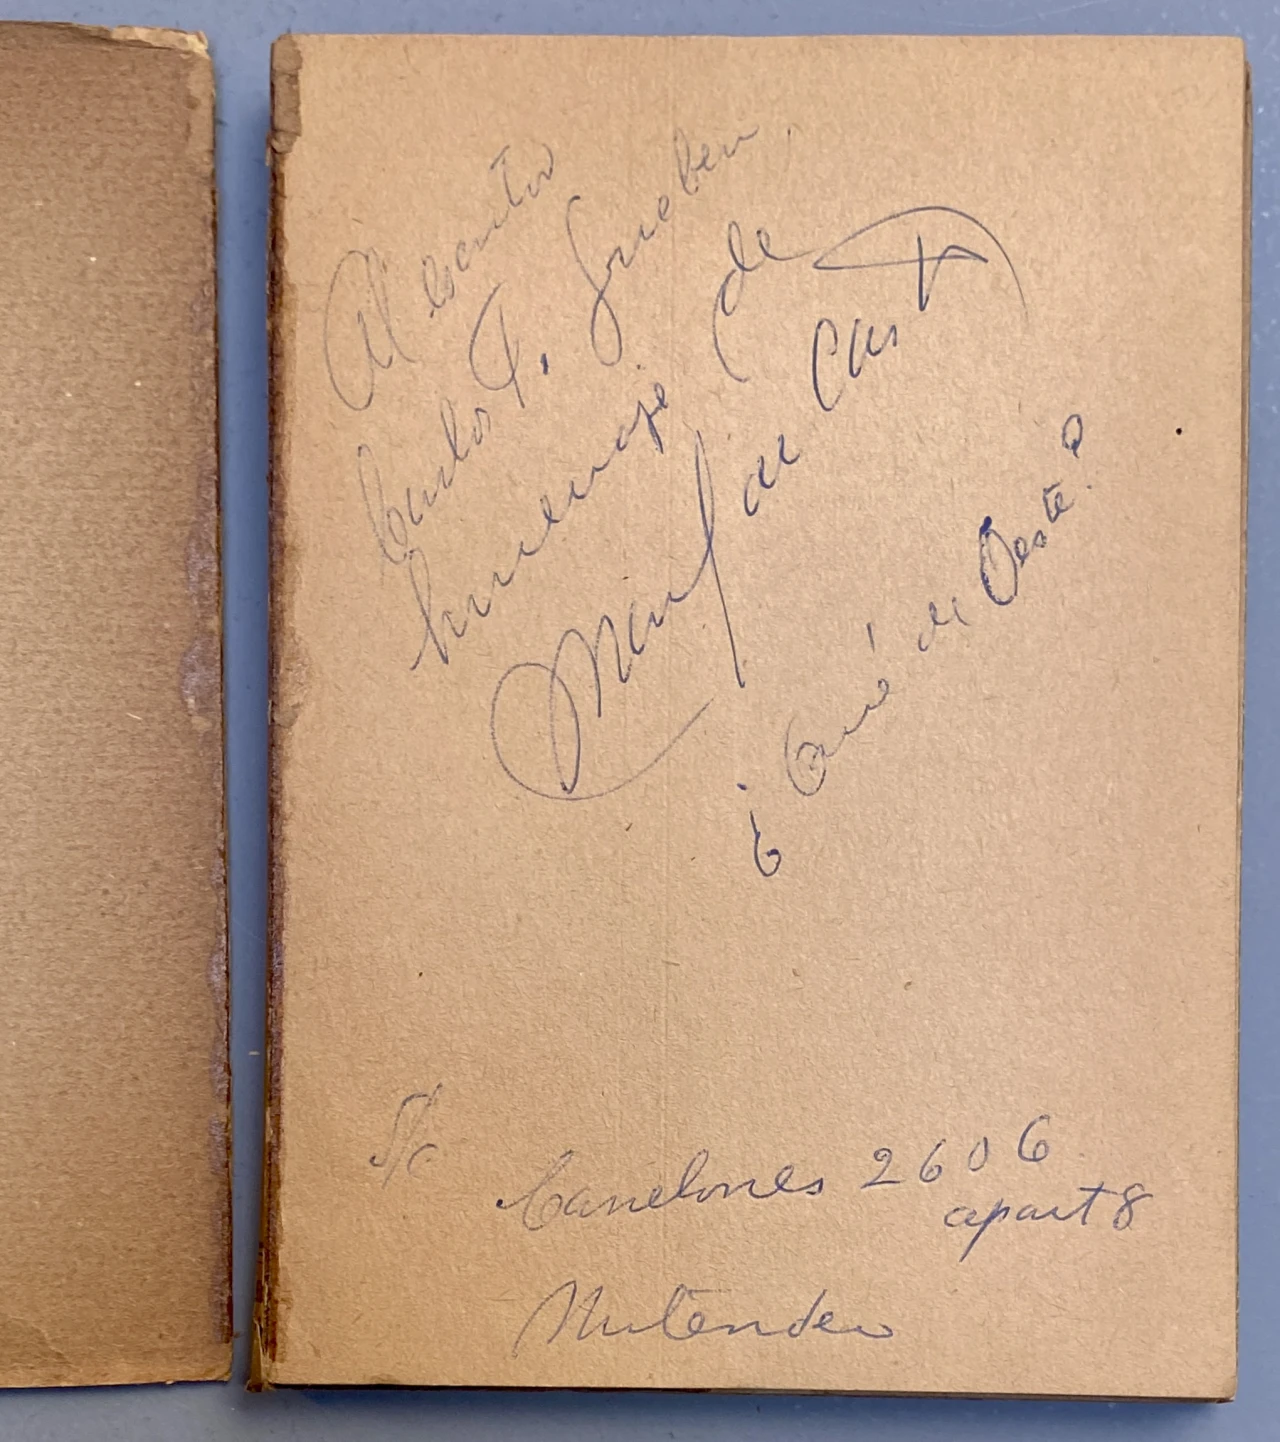 Al escritor
Carlos F. Grieben,
homenaje de
Manuel de Castro
¿Qué de Oeste?
S/c Canelones 2606
apart 8
Montevideo